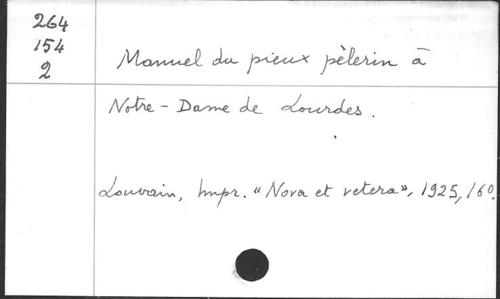 264
154
2
Manuel du pieux pèlerin à
Notre-Dame de Lourdes.
Louvain, Impr. "Nova et vetera", 1925, 16º.